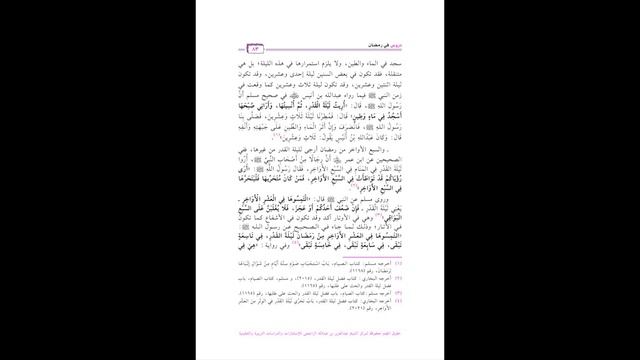 دروس في رمضان
٨٣
سجد في الماء والطين، ولا يلزم استمرارها في هذه الليلة؛ بل هي
متنقلة، فقد تكون في بعض السنين ليلة إحدى وعشرين، وقد تكون
ليلة اثنتين وعشرين، وقد تكون ليلة ثلاث وعشرين كما وقعت في
زمن النبي ﷺ فيما رواه عبدالله بن أنيس في صحيح مسلم أن
رسول الله ﷺ، قال: «أُرِيتُ لَيْلَةَ الْقَدْرِ، ثُمَّ أُنْسِيتُهَا، وَأَرَانِي صُبْحَهَا
أَسْجُدُ فِي مَاءٍ وَطِينٍ» قَالَ: فَمُطِرْنَا لَيْلَةَ ثَلَاثٍ وَعِشْرِينَ، فَصَلَّى بِنَا
رَسُولُ اللهِ ﷺ، فَانْصَرَفَ وَإِنَّ أَثَرَ الْمَاءِ وَالطِّينِ عَلَى جَبْهَتِهِ وَأَنْفِهِ
قَالَ: وَكَانَ عَبْدُاللهِ بْنُ أُنَيْسٍ يَقُولُ: ثَلَاثٍ وَعِشْرِينَ(١).
- والسبع الأواخر من رمضان أرجى لليلة القدر من غيرها، ففي
الصحيحين عن ابن عمر أَنَّ رِجَالًا مِنْ أَصْحَابِ النَّبِيِّ ﷺ، أُرُوا
لَيْلَةَ الْقَدْرِ فِي الْمَنَامِ فِي السَّبْعِ الْأَوَاخِرِ، فَقَالَ رَسُولُ اللهِ ﷺ: «أَرَى
رُؤْيَاكُمْ قَدْ تَوَاطَأَتْ فِي السَّبْعِ الْأَوَاخِرِ، فَمَنْ كَانَ مُتَحَرِّيَهَا فَلْيَتَحَرَّهَا
فِي السَّبْعِ الْأَوَاخِرِ»(٢).
وروى مسلم عن النبي ﷺ قال: «الْتَمِسُوهَا فِي الْعَشْرِ الْأَوَاخِرِ -
يَعْنِي لَيْلَةَ الْقَدْرِ - فَإِنْ ضَعُفَ أَحَدُكُمْ أَوْ عَجَزَ، فَلَا يُغْلَبَنَّ عَلَى السَّبْعِ
الْبَوَاقِي»(٣) وهي في الأوتار آكد وقد تكون في الأشفاع كما تكون
في الأوتار؛ وذلك لما جاء في الصحيح عن رسول الله ﷺ
«الْتَمِسُوهَا فِي الْعَشْرِ الْأَوَاخِرِ مِنْ رَمَضَانَ لَيْلَةَ الْقَدْرِ، فِي تَاسِعَةٍ
تَبْقَى، فِي سَابِعَةٍ تَبْقَى، فِي خَامِسَةٍ تَبْقَى»(٤) وفي رواية : «هِيَ
(١) أخرجه مسلم: كتاب الصيام، باب اسْتِحْبَابِ صَوْمِ سِتَّةِ أَيَّامٍ مِنْ شَوَّالٍ إِتْبَاعًا
لِرَمَضَانَ، رقم
(٢) أخرجه البخاري: كتاب باب فضل ليلة القدر، رقم (٢٠١٥)، و مسلم، كتاب الصيام، باب
فضل ليلة القدر والحث على طلبها، رقم (١١٦٥)
(٣) أخرجه مسلم: كتاب الصيام، باب فضل ليلة القدر والحث على طلبها، رقم (١١٦٥)
(٤) أخرجه البخاري: كتاب فضل ليلة القدر، باب تَحَرِّي لَيْلَةِ الْقَدْرِ فِي الْوِتْرِ مِنَ الْعَشْرِ
الْأَوَاخِرِ، رقم (٢٠٢١)
حقوق الطبع محفوظة لمركز الشيخ عبدالعزيز بن عبدالله الراجحي للاستشارات والدراسات التربوية والتعليمية